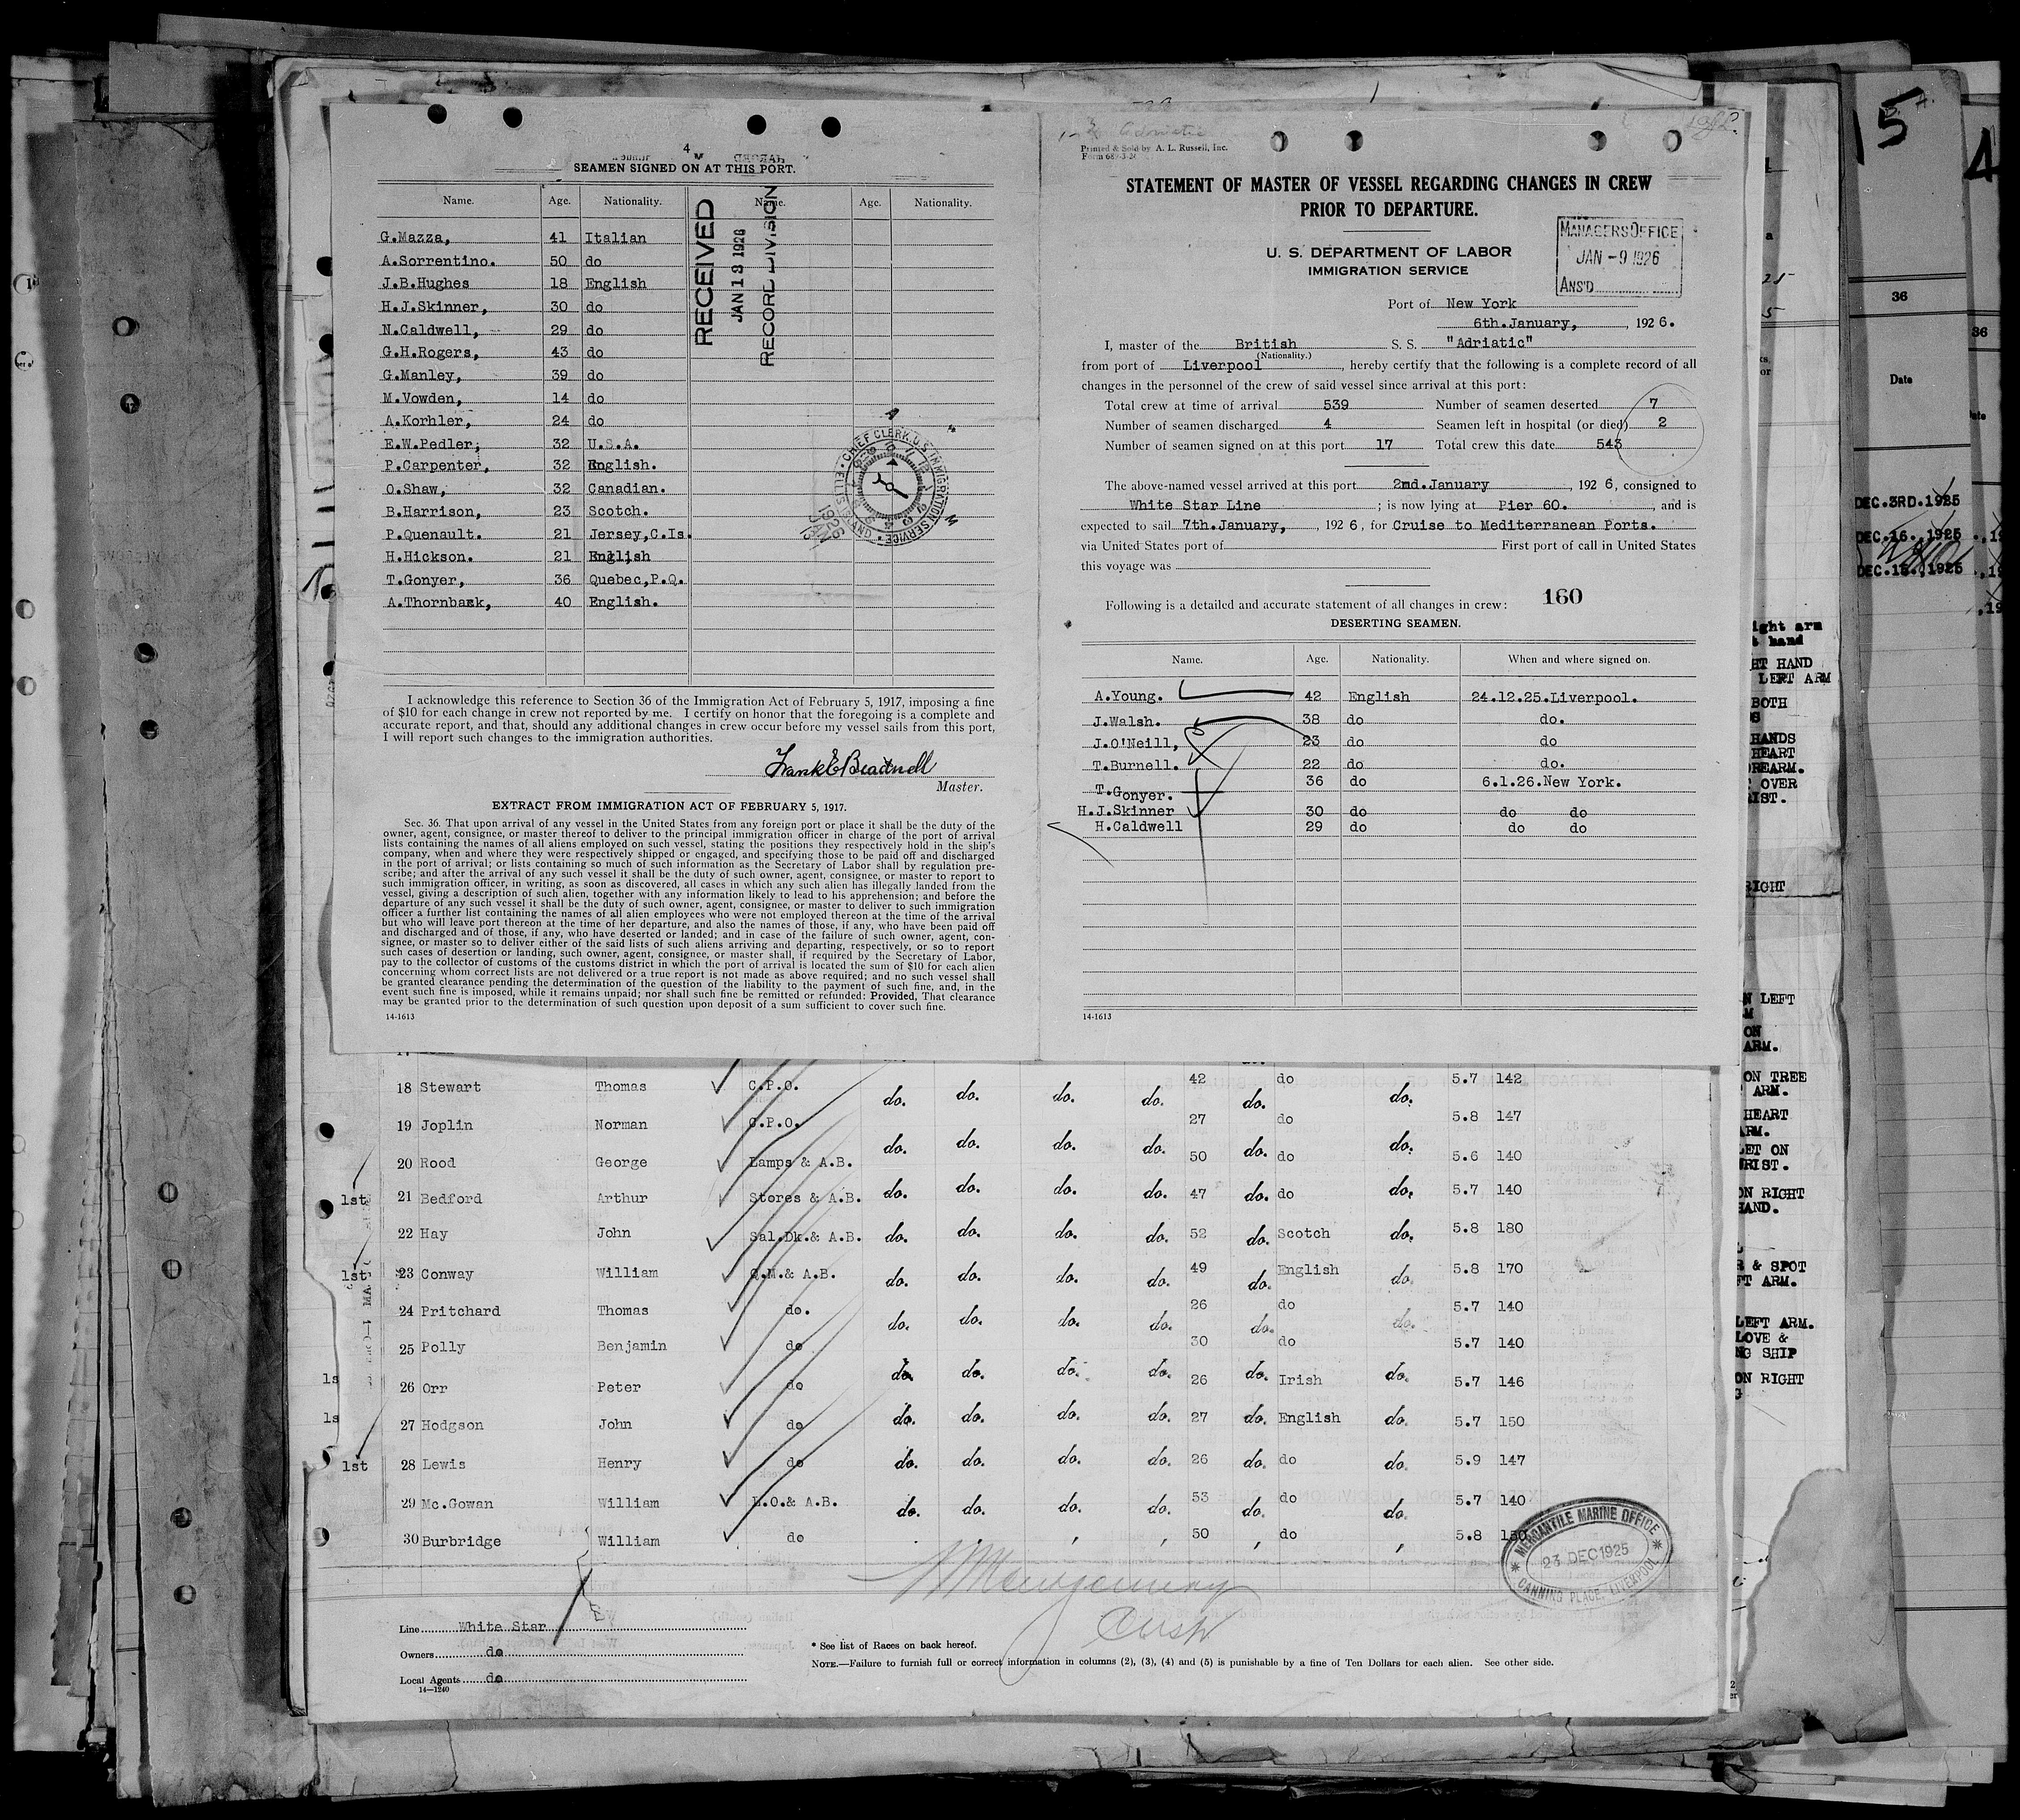 4
SEAMEN SIGNED ON AT THIS PORT.
Name. Age. Nationality. Name. Age. Nationality.
G.Mazza, 41 Italian
A.Sorrentino. 50 do
J.B.Hughes 18 English
H.J.Skinner, 30 do
N.Caldwell, 29 do
G.H.Rogers, 43 do
G.Manley, 39 do
M.Vowden, 14 do
A.Korhler, 24 do
E.W.Pedler, 32 U.S.A.
P.Carpenter, 32 English.
O.Shaw, 32 Canadian.
B.Harrison, 23 Scotch.
P.Quenault. 21 Jersey,C.Is.
H.Hickson. 21 English
T.Gonyer, 36 Quebec,P.Q.
A.Thornback, 40 English.
RECEIVED
JAN 13 1926
RECORD DIVISION
CHIEF CLERK, U.S. IMMIGRATION SERVICE • ELLIS ISLAND
1926
JAN
I acknowledge this reference to Section 36 of the Immigration Act of February 5, 1917, imposing a fine
of $10 for each change in crew not reported by me. I certify on honor that the foregoing is a complete and
accurate report, and that, should any additional changes in crew occur before my vessel sails from this port,
I will report such changes to the immigration authorities.
Master.
EXTRACT FROM IMMIGRATION ACT OF FEBRUARY 5, 1917.
Sec. 36. That upon arrival of any vessel in the United States from any foreign port or place it shall be the duty of the
owner, agent, consignee, or master thereof to deliver to the principal immigration officer in charge of the port of arrival
lists containing the names of all aliens employed on such vessel, stating the positions they respectively hold in the ship's
company, when and where they were respectively shipped or engaged, and specifying those to be paid off and discharged
in the port of arrival; or lists containing so much of such information as the Secretary of Labor shall by regulation pre-
scribe; and after the arrival of any such vessel it shall be the duty of such owner, agent, consignee, or master to report to
such immigration officer, in writing, as soon as discovered, all cases in which any such alien has illegally landed from the
vessel, giving a description of such alien, together with any information likely to lead to his apprehension; and before the
departure of any such vessel it shall be the duty of such owner, agent, consignee, or master to deliver to such immigration
officer a further list containing the names of all alien employees who were not employed thereon at the time of the arrival
but who will leave port thereon at the time of her departure, and also the names of those, if any, who have been paid off
and discharged and of those, if any, who have deserted or landed; and in case of the failure of such owner, agent, con-
signee, or master so to deliver either of the said lists of such aliens arriving and departing, respectively, or so to report
such cases of desertion or landing, such owner, agent, consignee, or master shall, if required by the Secretary of Labor,
pay to the collector of customs of the customs district in which the port of arrival is located the sum of $10 for each alien
concerning whom correct lists are not delivered or a true report is not made as above required; and no such vessel shall
be granted clearance pending the determination of the question of the liability to the payment of such fine, and, in the
event such fine is imposed, while it remains unpaid; nor shall such fine be remitted or refunded: Provided, That clearance
may be granted prior to the determination of such question upon deposit of a sum sufficient to cover such fine.
14-1613
Adriatic
Printed & Sold by A. L. Russell, Inc.
STATEMENT OF MASTER OF VESSEL REGARDING CHANGES IN CREW
PRIOR TO DEPARTURE.
U. S. DEPARTMENT OF LABOR
IMMIGRATION SERVICE
MANAGERS OFFICE
JAN -9 1926
ANS'D
Port of New York
6th.January, , 192 6.
I, master of the British S. S. "Adriatic"
(Nationality.)
from port of Liverpool , hereby certify that the following is a complete record of all
changes in the personnel of the crew of said vessel since arrival at this port:
Total crew at time of arrival 539 Number of seamen deserted 7
Number of seamen discharged 4 Seamen left in hospital (or died) 2
Number of seamen signed on at this port 17 Total crew this date 543
The above-named vessel arrived at this port 2nd.January , 192 6, consigned to
White Star Line ; is now lying at Pier 60. , and is
expected to sail 7th.January, , 192 6, for Cruise to Mediterranean Ports.
via United States port of First port of call in United States
this voyage was
Following is a detailed and accurate statement of all changes in crew: 160
DESERTING SEAMEN.
Name. Age. Nationality. When and where signed on.
A.Young. 42 English 24.12.25.Liverpool.
J.Walsh. 38 do do.
J.O'Neill, 23 do do
T.Burnell. 22 do do.
T.Gonyer. 36 do 6.1.26.New York.
H.J.Skinner 30 do do do
H.Caldwell 29 do do do
14-1613
18 Stewart Thomas C.P.O. do. do. do. do. 42 do. do do. 5.7 142
19 Joplin Norman C.P.O. do. do. do. do. 27 do. do do. 5.8 147
20 Rood George Lamps & A.B. 50 do 5.6 140
1st 21 Bedford Arthur Stores & A.B. do. do. do. do. 47 do. do do. 5.7 140
22 Hay John Sal.Dk.& A.B. do. do. do. do. 52 do. Scotch do. 5.8 180
1st 23 Conway William Q.M.& A.B. do. do. do. do. 49 do. English do. 5.8 170
24 Pritchard Thomas do. do. do. do. do. 26 do. do do. 5.7 140
25 Polly Benjamin do 30 do 5.7 140
1s 26 Orr Peter do do. do. do. do. 26 do. Irish do. 5.7 146
1s 27 Hodgson John do do. do. do. do. 27 do. English do. 5.7 150
1st 28 Lewis Henry do do. do. do. do. 26 do. do do. 5.9 147
29 Mc.Gowan William L.O.& A.B. do. do. do. do. 53 do. do do. 5.7 140
30 Burbridge William do 50 do 5.8 150
MERCANTILE MARINE OFFICE
23 DEC 1925
CANNING PLACE, LIVERPOOL
Line White Star
Owners do
Local Agents do
14—1240
* See list of Races on back hereof.
NOTE.—Failure to furnish full or correct information in columns (2), (3), (4) and (5) is punishable by a fine of Ten Dollars for each alien. See other side.
15
36
Date
DEC.3RD.1925
DEC.16.,1925
DEC.15.,1925
36
ight arm
hand
HT HAND
LEFT ARM
BOTH
HANDS
HEART
REARM.
OVER
IST.
RIGHT
N LEFT
ON
ARM.
ON TREE
ARM.
HEART
ARM.
LET ON
RIST.
ON RIGHT
HAND.
& SPOT
FT ARM.
LEFT ARM.
LOVE &
NG SHIP
ON RIGHT